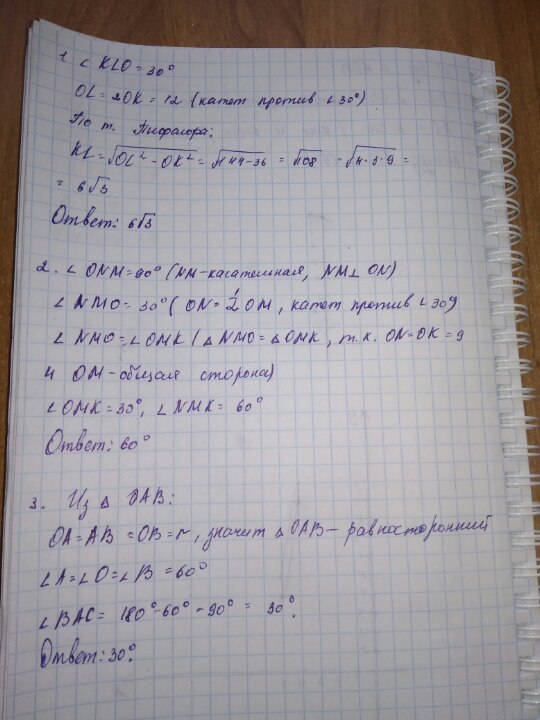 1. ∠ KLO = 30°
OL = 2OK = 12 (катет против ∠30°)
По т. Пифагора:
KL = √OL² - OK² = √144-36 = √108 = √4·3·9 =
= 6√3
Ответ: 6√3
2. ∠ ONM = 90° (NM - касательная, NM ⊥ ON)
∠ NMO = 30° (ON = ½OM, катет против ∠30°)
∠ NMO = ∠OMK (△ NMO = △ OMK, т.к. ON = OK = 9
и OM - общая сторона)
∠OMK = 30°, ∠ NMK = 60°
Ответ: 60°
3. Из △ OAB:
OA = AB = OB = r, значит △ OAB - равносторонний
∠A = ∠O = ∠B = 60°
∠ BAC = 180° - 60° - 90° = 30°.
Ответ: 30°.